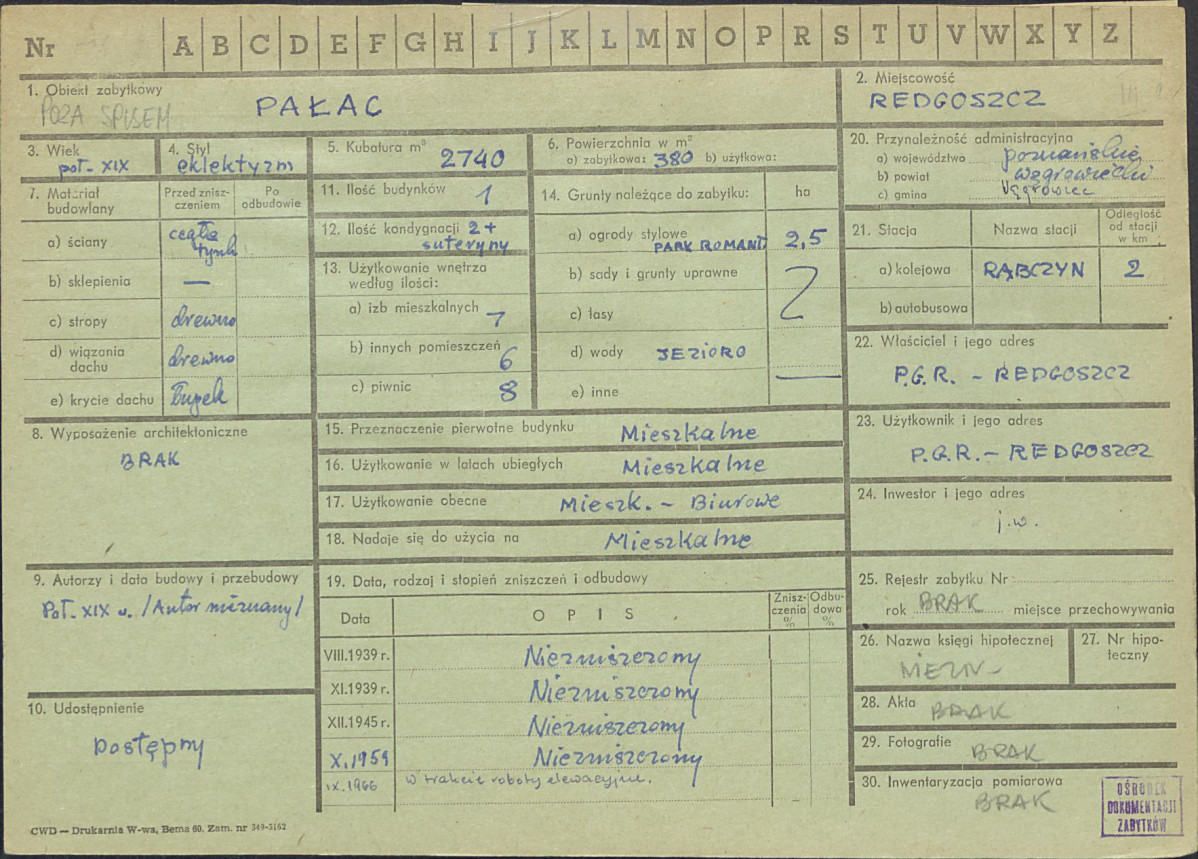 Nr A B C D E F G H I J K L M N O P R S T U V W X Y Z
1. Obiekt zabytkowy
POZA SPISEM
PAŁAC
2. Miejscowość
REDGOSZCZ
3. Wiek
poł. XIX
4. Styl
eklektyzm
5. Kubatura m³
2740
6. Powierzchnia w m²
a) zabytkowa: 380 b) użytkowa:
20. Przynależność administracyjna
a) województwo poznańskie
b) powiat wągrowiecki
c) gmina Wągrowiec
7. Materiał budowlany
Przed zniszczeniem
Po odbudowie
a) ściany cegła tynk
b) sklepienia —
c) stropy drewno
d) wiązania dachu drewno
e) krycie dachu Łupek
11. Ilość budynków 1
12. Ilość kondygnacji 2 + suteryny
13. Użytkowanie wnętrza według ilości:
a) izb mieszkalnych 7
b) innych pomieszczeń 6
c) piwnic 8
14. Grunty należące do zabytku: ha
a) ogrody stylowe PARK ROMANT 2,5
b) sady i grunty uprawne
c) lasy
d) wody JEZIORO
e) inne —
21. Stacja
Nazwa stacji
Odległość od stacji w km
a) kolejowa RĄBCZYN 2
b) autobusowa
22. Właściciel i jego adres
P.G.R. - REDGOSZCZ
8. Wyposażenie architektoniczne
BRAK
15. Przeznaczenie pierwotne budynku Mieszkalne
16. Użytkowanie w latach ubiegłych Mieszkalne
17. Użytkowanie obecne Mieszk. - Biurowe
18. Nadaje się do użycia na Mieszkalne
23. Użytkownik i jego adres
P.G.R. - REDGOSZCZ
24. Inwestor i jego adres
j.w.
9. Autorzy i data budowy i przebudowy
Poł. XIX w. /Autor nieznany/
19. Data, rodzaj i stopień zniszczeń i odbudowy
Data
OPIS
Zniszczenia %
Odbudowa %
VIII.1939 r. Niezniszczony
XI.1939 r. Niezniszczony
XII.1945 r. Niezniszczony
X.1959 Niezniszczony
IX.1966 w trakcie roboty elewacyjne.
25. Rejestr zabytku Nr
rok BRAK miejsce przechowywania
26. Nazwa księgi hipotecznej
NIEZN-
27. Nr hipoteczny
28. Akta BRAK
29. Fotografie BRAK
30. Inwentaryzacja pomiarowa
BRAK
10. Udostępnienie
Dostępny
OŚRODEK
DOKUMENTACJI
ZABYTKÓW
CWD — Drukarnia W-wa, Bema 60. Zam. nr 349-3162